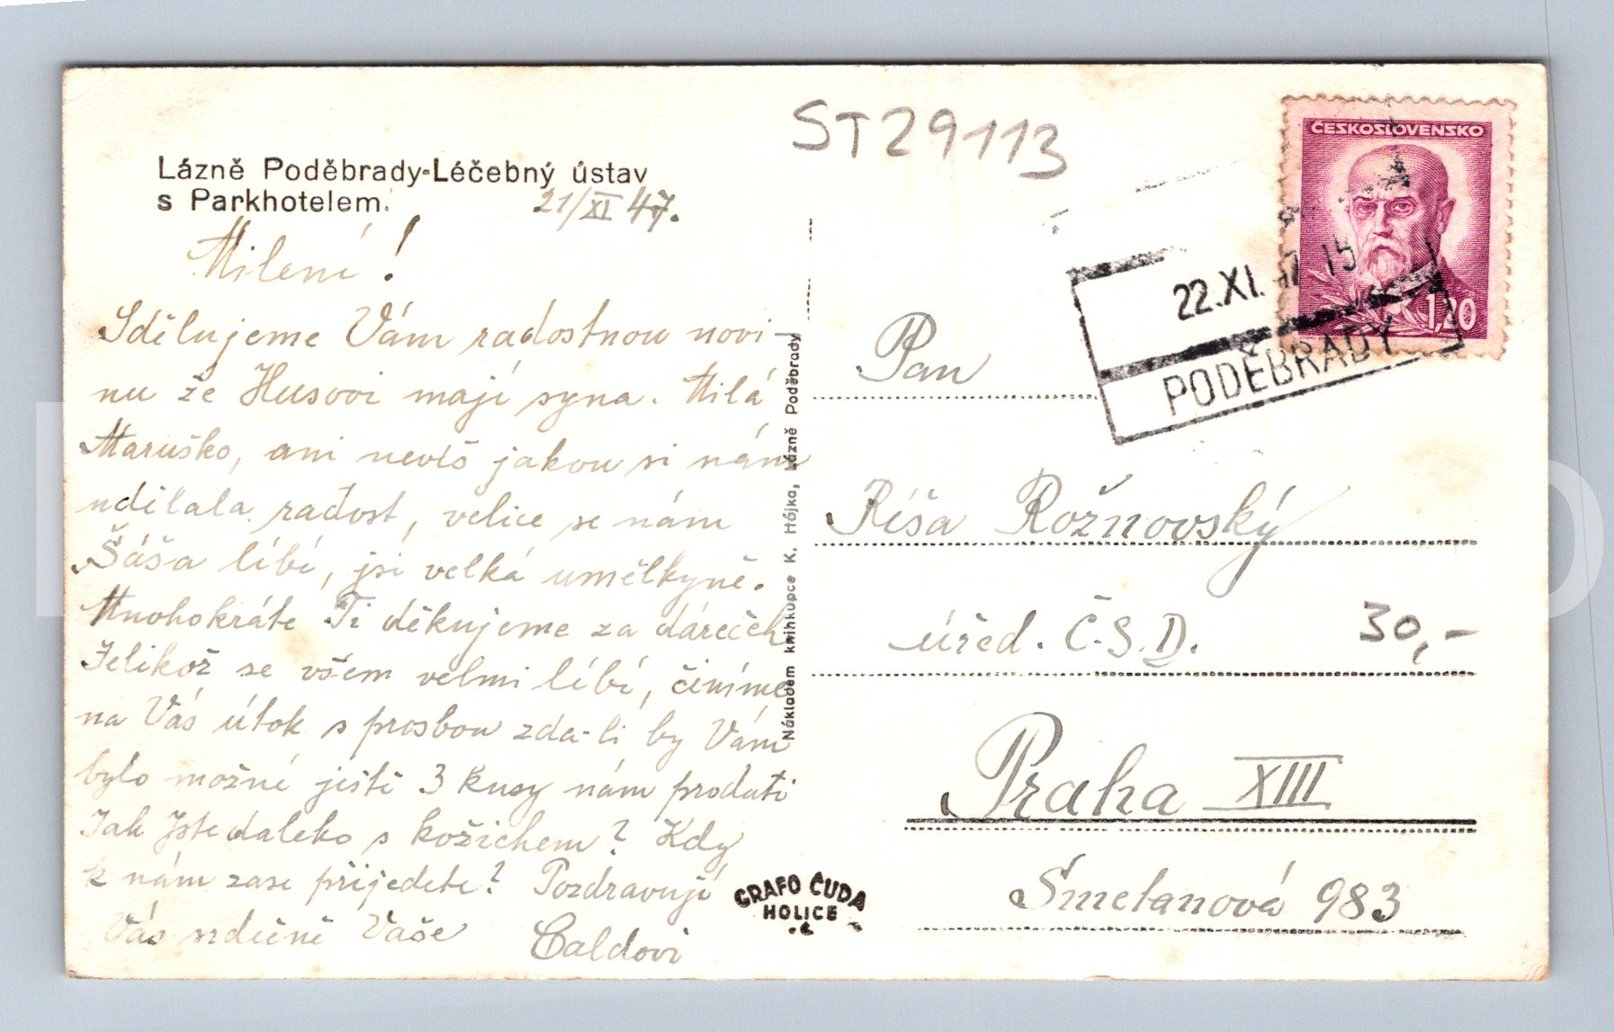 ST29113
Lázně Poděbrady-Léčebný ústav
s Parkhotelem.
21/XI 47.
Milení!
Sdělujeme Vám radostnou novi-
nu že Husovi mají syna. Milá
Maruško, ani nevíš jakou si nám
udělala radost, velice se nám
Šáša líbí, jsi velká umělkyně.
Mnohokráte Ti děkujeme za dáreček
Jelikož se všem velmi líbí, činíme
na Vás útok s prosbou zda-li by Vám
bylo možné ještě 3 kusy nám prodati
Jak jste daleko s kožichem? Kdy
k nám zase přijedete? Pozdravují
Vás srdečně Vaše Caldovi
Nákladem knihkupce K. Hójka, Lázně Poděbrady
GRAFO ČUDA
HOLICE
ČESKOSLOVENSKO
1,20
22.XI. 47 15
PODĚBRADY
Pan
Ríša Rožnovský
úřed. Č.S.D.
30,-
Praha XIII
Smetanová 983